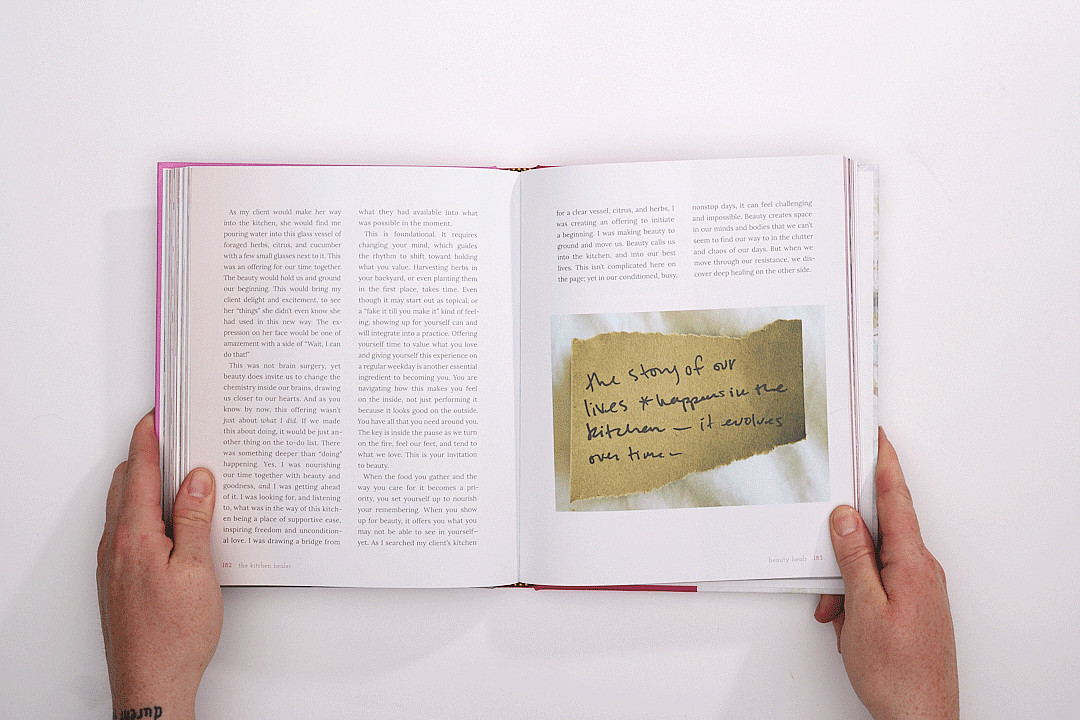 As my client would make her way
into the kitchen, she would find me
pouring water into this glass vessel of
foraged herbs, citrus, and cucumber
with a few small glasses next to it. This
was an offering for our time together.
The beauty would hold us and ground
our beginning. This would bring my
client delight and excitement, to see
her “things” she didn’t even know she
had used in this new way. The ex-
pression on her face would be one of
amazement with a side of “Wait, I can
do that!”
This was not brain surgery, yet
beauty does invite us to change the
chemistry inside our brains, drawing
us closer to our hearts. And as you
know by now, this offering wasn’t
just about what I did. If we made
this about doing, it would be just an-
other thing on the to-do list. There
was something deeper than “doing”
happening. Yes, I was nourishing
our time together with beauty and
goodness, and I was getting ahead
of it. I was looking for, and listening
to, what was in the way of this kitch-
en being a place of supportive ease,
inspiring freedom and uncondition-
al love. I was drawing a bridge from
what they had available into what
was possible in the moment.
This is foundational. It requires
changing your mind, which guides
the rhythm to shift toward holding
what you value. Harvesting herbs in
your backyard, or even planting them
in the first place, takes time. Even
though it may start out as topical, or
a “fake it till you make it” kind of feel-
ing, showing up for yourself can and
will integrate into a practice. Offering
yourself time to value what you love
and giving yourself this experience on
a regular weekday is another essential
ingredient to becoming you. You are
navigating how this makes you feel
on the inside, not just performing it
because it looks good on the outside.
You have all that you need around you.
The key is inside the pause as we turn
on the fire, feel our feet, and tend to
what we love. This is your invitation
to beauty.
When the food you gather and the
way you care for it becomes a pri-
ority, you set yourself up to nourish
your remembering. When you show
up for beauty, it offers you what you
may not be able to see in yourself—
yet. As I searched my client’s kitchen
182 the kitchen healer
for a clear vessel, citrus, and herbs, I
was creating an offering to initiate
a beginning. I was making beauty to
ground and move us. Beauty calls us
into the kitchen, and into our best
lives. This isn’t complicated here on
the page; yet in our conditioned, busy,
nonstop days, it can feel challenging
and impossible. Beauty creates space
in our minds and bodies that we can’t
seem to find our way to in the clutter
and chaos of our days. But when we
move through our resistance, we dis-
cover deep healing on the other side.
the story of our
lives *happens in the
kitchen — it evolves
over time —
beauty heals 183